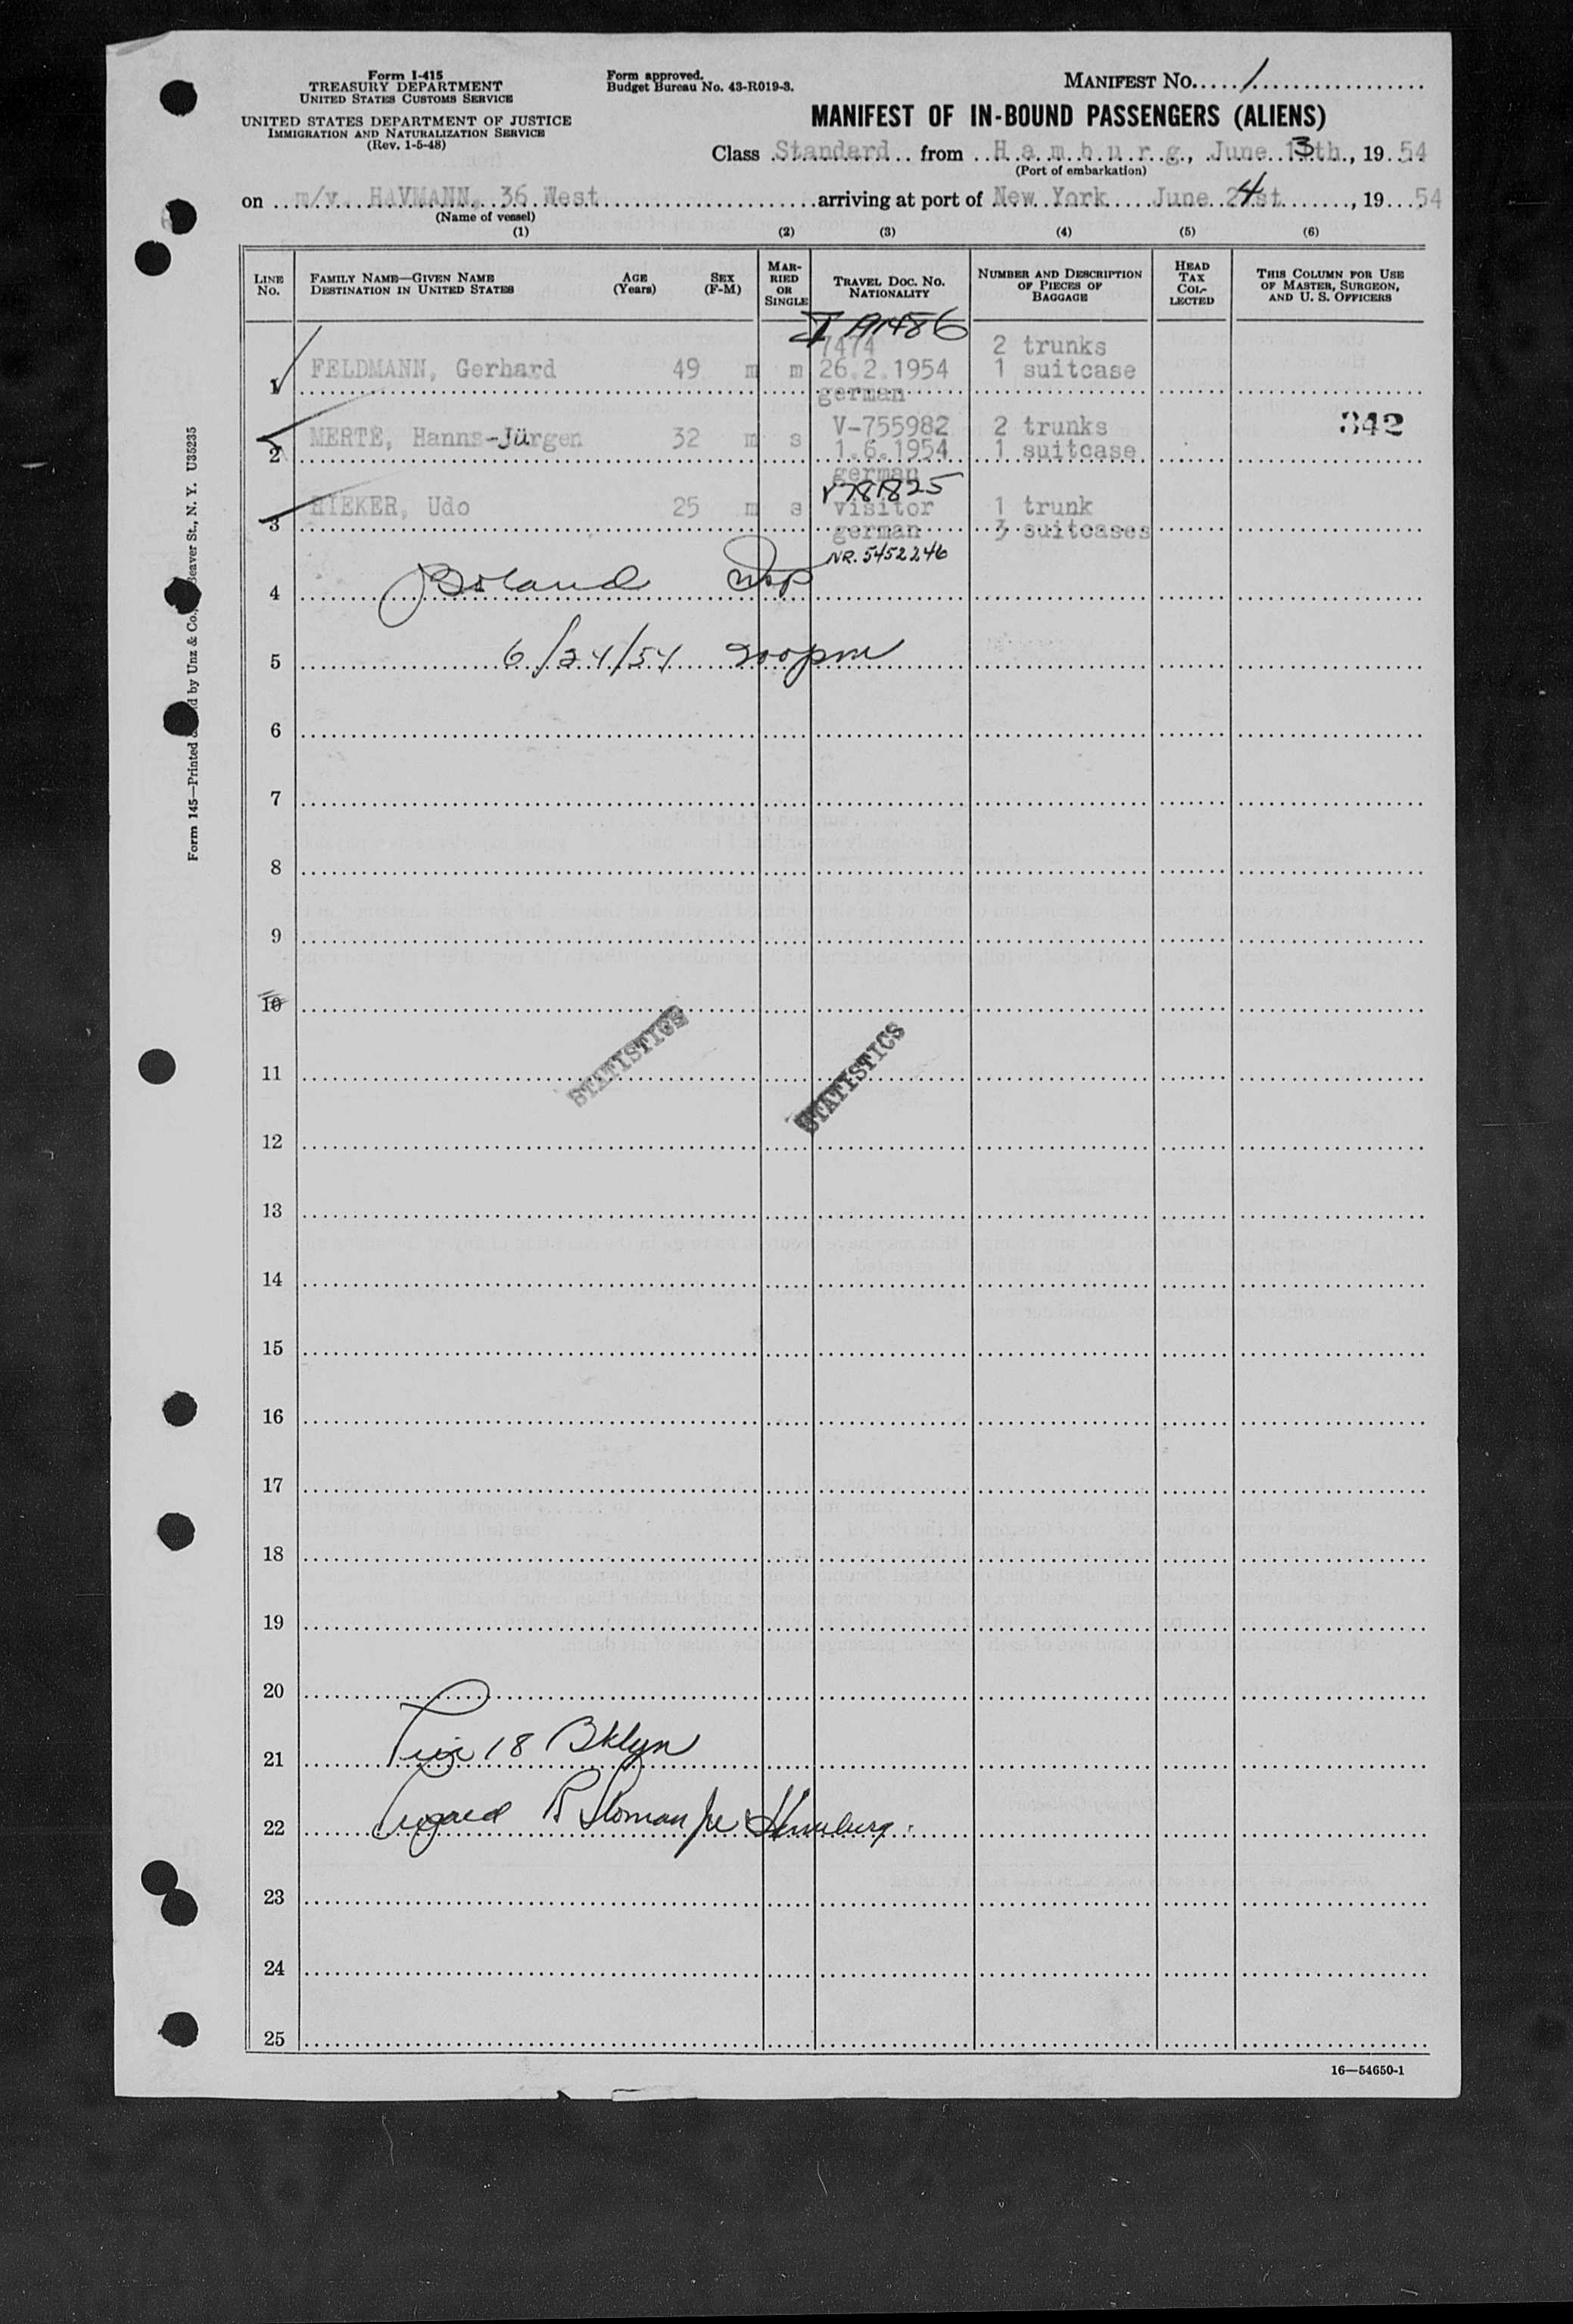 Form I-415
TREASURY DEPARTMENT
UNITED STATES CUSTOMS SERVICE
UNITED STATES DEPARTMENT OF JUSTICE
IMMIGRATION AND NATURALIZATION SERVICE
(Rev. 1-5-48)
Form approved.
Budget Bureau No. 43-R019-3.
MANIFEST No. 1
MANIFEST OF IN-BOUND PASSENGERS (ALIENS)
Class Standard from Hamburg, June 13th, 19 54
(Port of embarkation)
on m/v. HAVMANN, 36 West arriving at port of New York June 24st, 19 54
(Name of vessel)
(1) (2) (3) (4) (5) (6)
LINE No. FAMILY NAME—GIVEN NAME DESTINATION IN UNITED STATES AGE (Years) SEX (F-M) MARRIED OR SINGLE TRAVEL DOC. NO. NATIONALITY NUMBER AND DESCRIPTION OF PIECES OF BAGGAGE HEAD TAX COLLECTED THIS COLUMN FOR USE OF MASTER, SURGEON, AND U. S. OFFICERS
I A1486
7474 2 trunks
1 FELDMANN, Gerhard 49 m m 26.2.1954 1 suitcase
german
V-755982 2 trunks 342
2 MERTÉ, Hanns-Jürgen 32 m s 1.6.1954 1 suitcase
german
V781825
3 HIEKER, Udo 25 m s visitor 1 trunk
german 3 suitcases
NR. 5452246
4 Boland
5 6/24/54 200pm
6
7
8
9
10
11 STATISTICS STATISTICS
12
13
14
15
16
17
18
19
20
21 Pier 18 Bklyn
22 R Sloman Jr Hamburg
23
24
25
16—54650-1
Form 145—Printed by Unz & Co., Beaver St., N. Y. U35235